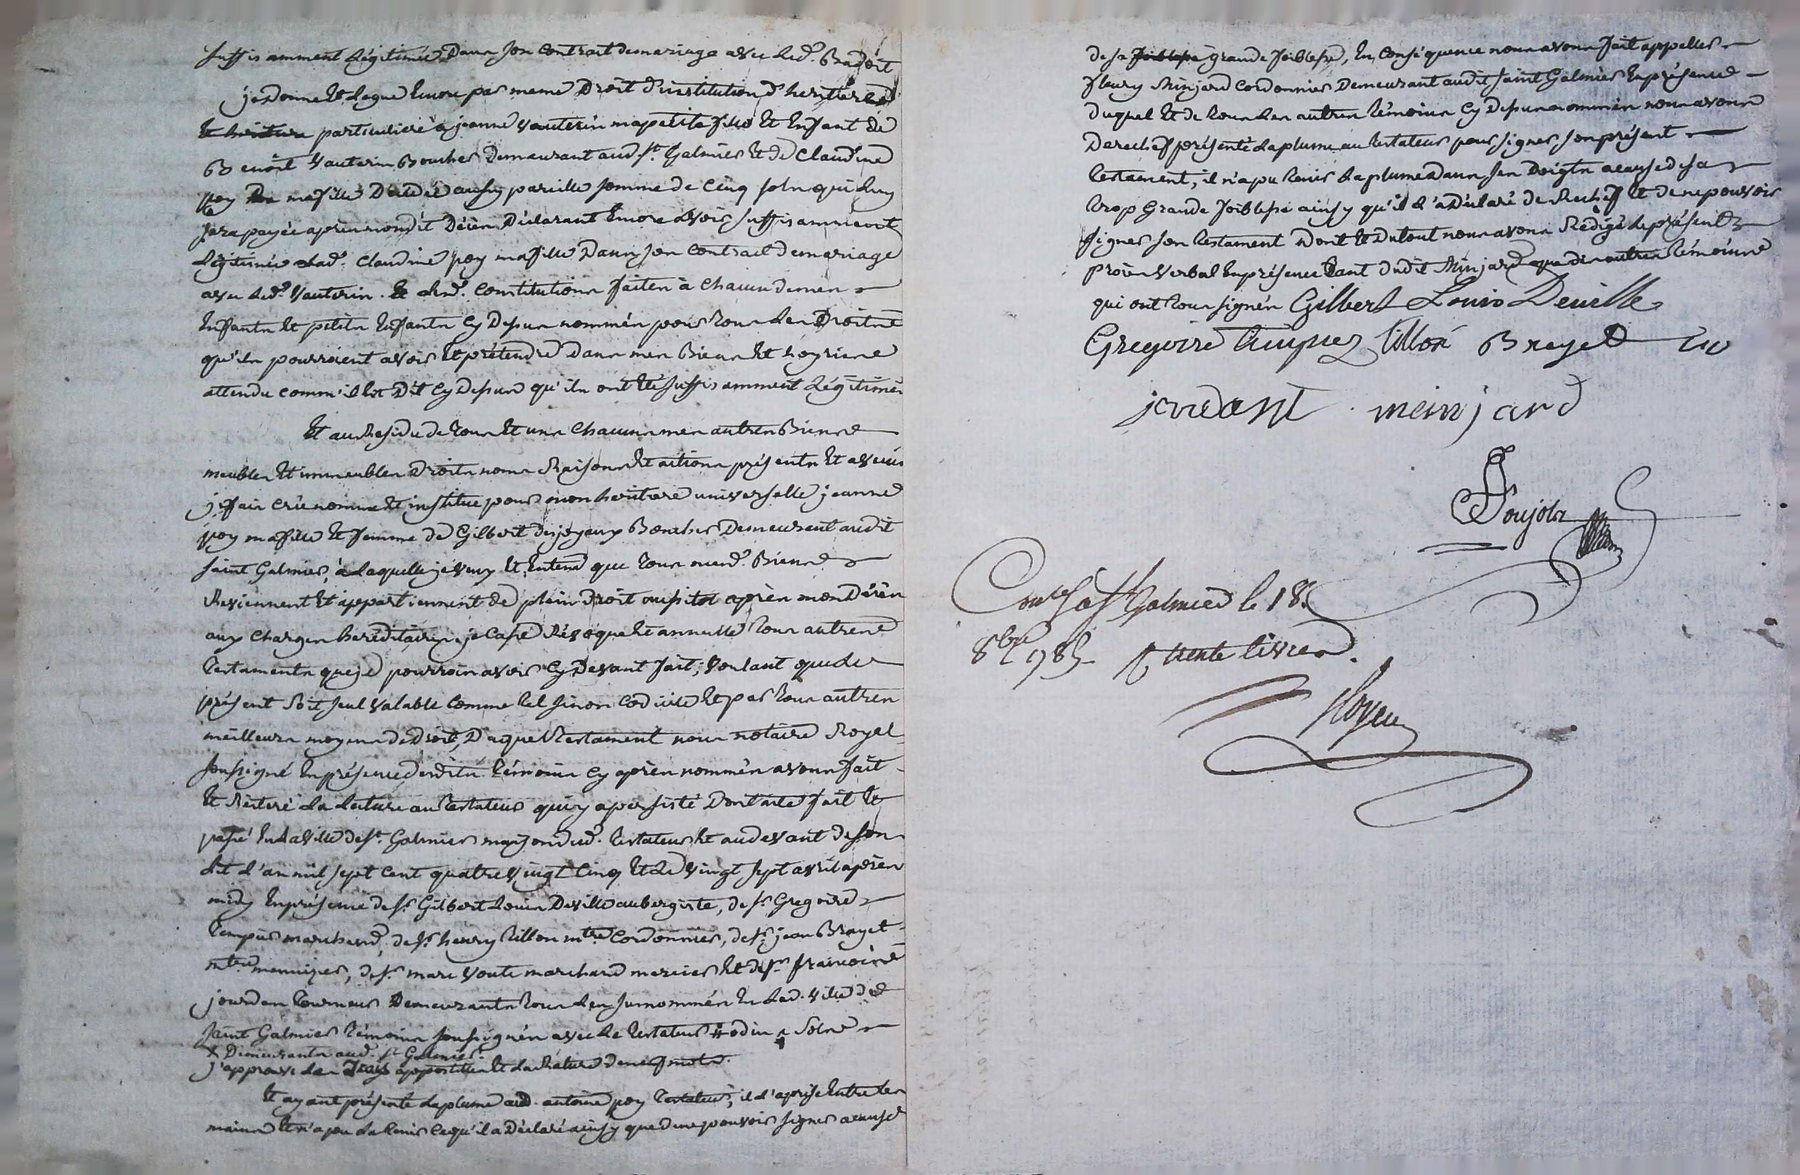 suffisamment légitimée dans son contrat de mariage avec led. Badoit
je donne et legue encore par meme droit d'institution d'heritiere
particuliere à jeanne vauterin ma petite fille et enfant de
Benoit vauterin Boucher demeurant aud. st. Galmier et de Claudine
poy ma fille décédée aussy pareille somme de cinq sols qui luy
sera payée après mondit décès déclarant encore avoir suffisamment
légitimée lad. Claudine poy ma fille dans son contract de mariage
avec led. vauterin. et lesd. constitutions faites à chacun de mes
enfants et petits enfants cy dessus nommés pour tous les droits
qu'ils pourroient avoir et prétendre dans mes biens et hoyrie
attendu comm'il est dit cy dessus qu'ils ont été suffisamment légitimés
Et au Residu de tous et uns chacuns mes autres Biens
meubles et immeubles droits noms Raisons et actions présents et avenir
j'fais crée nomme et institue pour mon heritiere universelle jeanne
poy ma fille et femme de Gilbert desjoyaux Boucher demeurant audit
saint Galmier, à laquelle je veux et entend que tous mesd. Biens
Reviennent et appartiennent de plein droit aussitot après mon décès
aux charges hereditaires. je casse Révoque et annulle tous autres
testaments que je pourrois avoir cy devant fait; voulant que le
présent soit seul valable comme tel sinon codicile et par tous autres
meilleurs moyens de Droit, Duquel testament nous notaire Royal
soussigné en présence desdits témoins cy après nommés avons fait
et Réiteré la lecture au testateur qui y a persisté dont acte fait et
passé en la ville de st. Galmier maison dud. testateur et audevant de son
lit l'an mil sept cent quatre vingt cinq et le vingt sept avril après
midy en présence de sr. Gilbert Louis Deville aubergiste, de sr. Gregoire
tempier marchand, de sr. henry tillon mtre. Cordonnier, de sr. jean Brayet
mtre. menuizier, de sr. marc voute marchand mercier et de sr. francois
jourdan tourneur demeurants tous les susnommés en lad. ville de
saint Galmier témoins soussignés avec le testateur
x Demeurants aud. st. Galmier.
j'approuve les et la Rature de mots.
Et ayant présenté la plume aud. antoine poy testateur, il l'a prise entre les
mains et n'a pu la tenir ce qu'il a déclaré ainsy que de ne pouvoir signer a cause
de sa grande foiblesse, En conséquence nous avons fait appeller
fleury minjard cordonnier demeurant audit saint Galmier en présence
duquel et de tous les autres témoins cy dessus nommés nous avons
derechef présenté la plume au testateur pour signer son présent
testament, il n'a pu tenir la plume dans ses doigts a cause de sa
trop grande foiblesse ainsy qu'il l'a déclaré de Rechef et de ne pouvoir
signer son testament dont et du tout nous avons Rédigé le présent
procès verbal en présence tant dudit minjard que des autres témoins
qui ont tous signés Gilbert Louis Deville
Gregoire tillon Brayet
jourdant meinjard
Poujola
Conlé à St Galmier le 18
8bre 1785 trente livres.